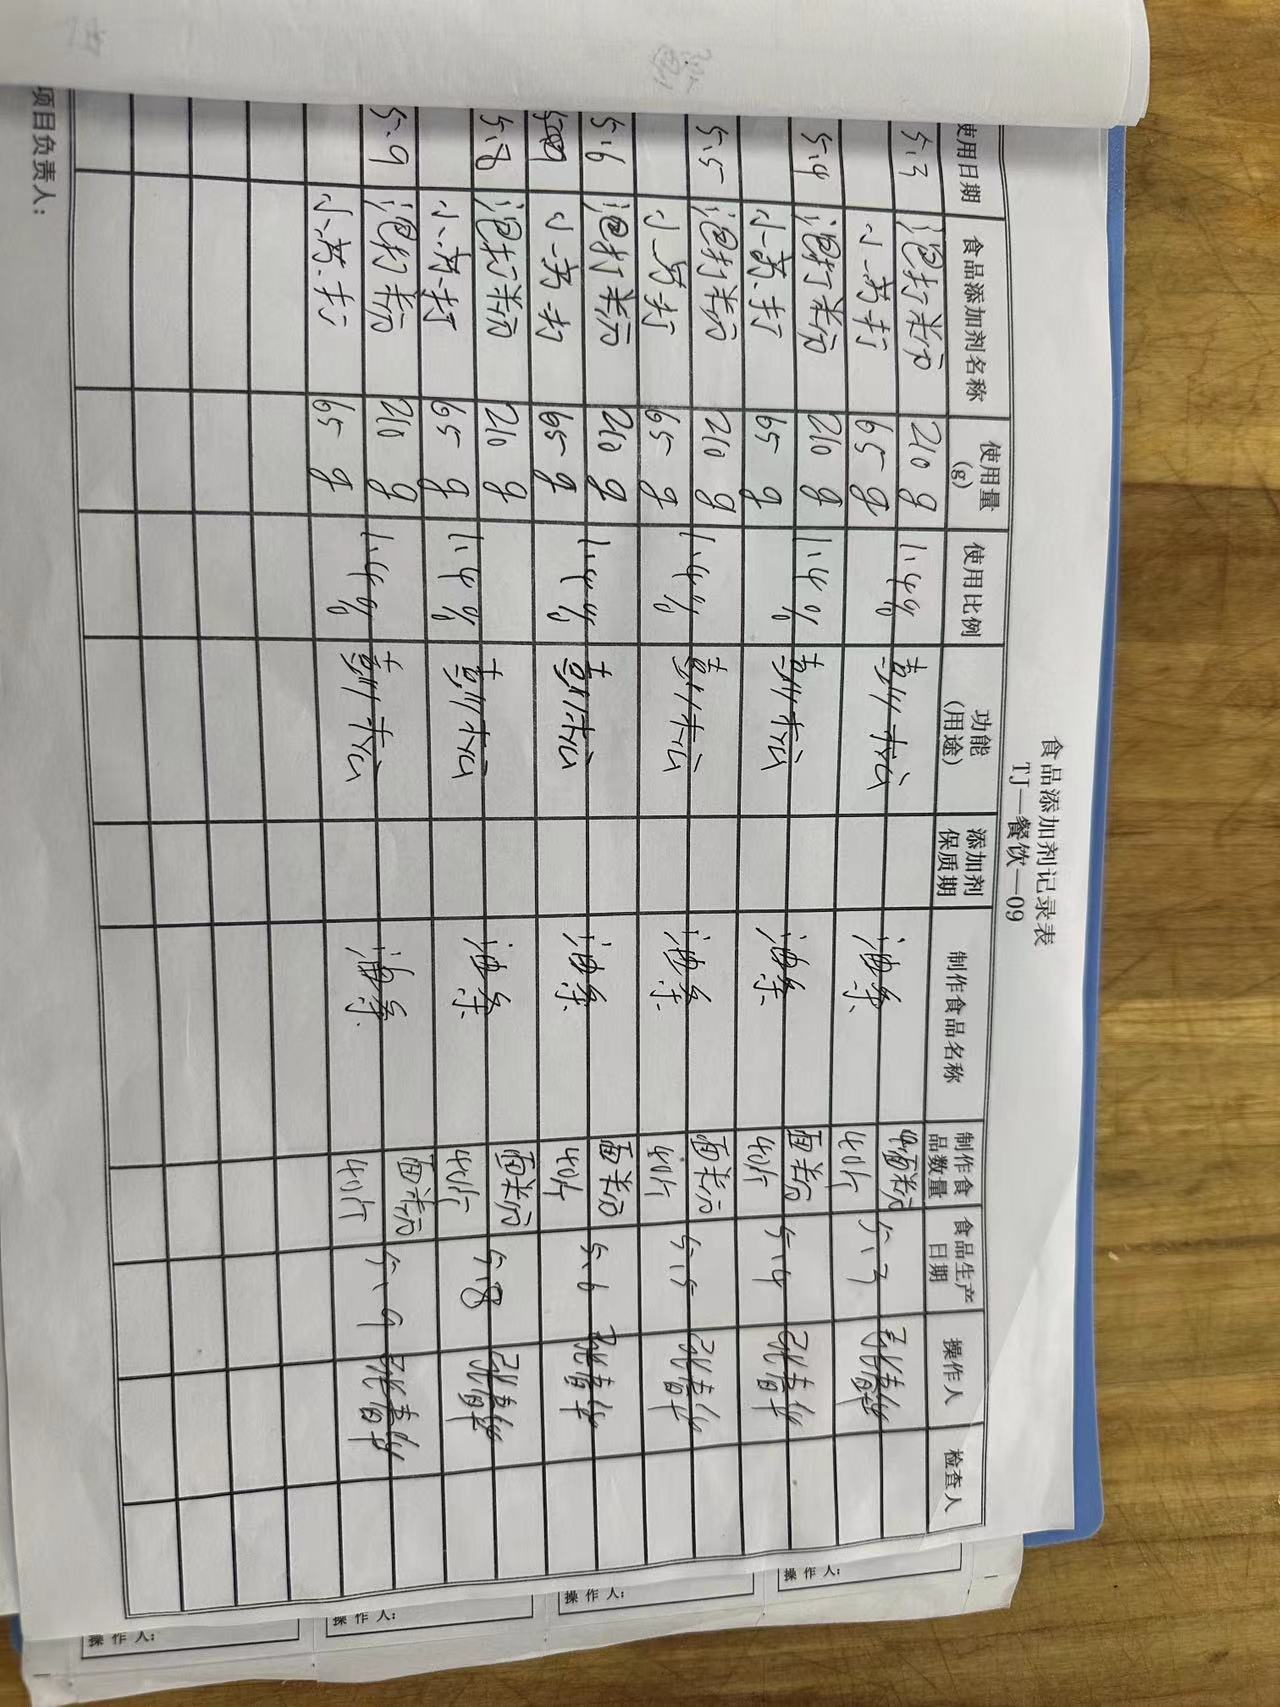 食品添加剂记录表
TJ—餐饮—09
使用日期 食品添加剂名称 使用量(g) 使用比例 功能(用途) 添加剂保质期 制作食品名称 制作食品数量 食品生产日期 操作人 检查人
5.3 泡打粉 210 g 1.4% 膨松 油条 面粉 5.3
小苏打 65 g 40斤
5.4 泡打粉 210 g 1.4% 膨松 油条 面粉 5.4
小苏打 65 g 40斤
5.5 泡打粉 210 g 1.4% 膨松 油条 面粉 5.5
小苏打 65 g 40斤
5.6 泡打粉 210 g 1.4% 膨松 油条 面粉 5.6
小苏打 65 g 40斤
5.8 泡打粉 210 g 1.4% 膨松 油条 面粉 5.8
小苏打 65 g 40斤
5.9 泡打粉 210 g 1.4% 膨松 油条 面粉 5.9
小苏打 65 g 40斤
项目负责人：
操 作 人：
操 作 人：
操 作 人：
操 作 人：